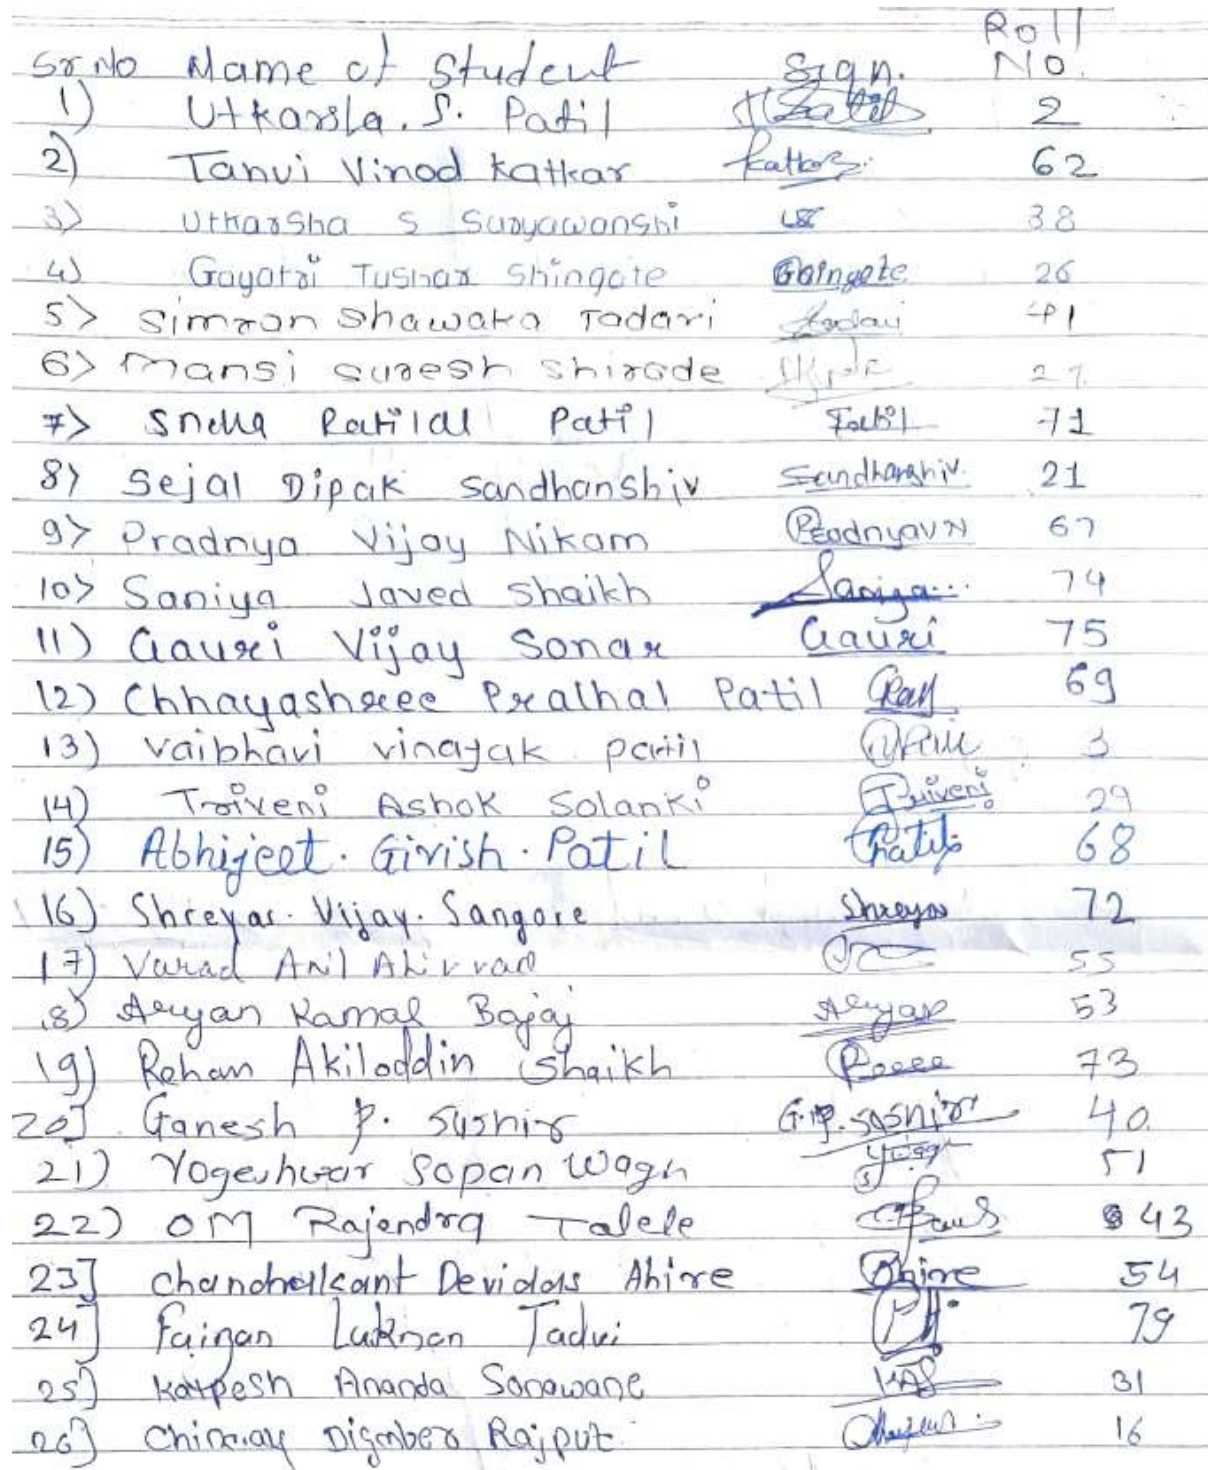 Roll
Sr.No Name of Student Sign. No.
1) Utkarsha. S. Patil Patil 2
2) Tanvi Vinod Katkar Katkar 62
3) Utkarsha S Suryawanshi 38
4) Gayatri Tushar Shingote Shingote 26
5) Simran Shawaka Tadavi Tadavi 41
6) Mansi Suresh Shirode 27
7) Sneha Ratilal Patil Patil 71
8) Sejal Dipak Sandhanshiv Sandhanshiv 21
9) Pradnya Vijay Nikam PradnyaVN 67
10) Saniya Javed Shaikh Saniya 74
11) Gauri Vijay Sonar Gauri 75
12) Chhayashree Pralhal Patil 69
13) Vaibhavi vinayak patil 3
14) Triveni Ashok Solanki Triveni 29
15) Abhijeet. Girish. Patil Patil 68
16) Shreyas. Vijay. Sangore Shreyas 72
17) Varad Anil Ahirrao 55
18) Aryan Kamal Bajaj Aryan 53
19) Rehan Akiloddin Shaikh 73
20] Ganesh P. Sushir G.P. Sushir 40
21) Yogeshwar Sopan Wagh 51
22) OM Rajendra Talele 43
23] Chandrakant Devidas Ahire Ahire 54
24] Faizan Lukman Tadvi 79
25) Kalpesh Ananda Sonawane KAS 31
26) Chinmay Digmber Rajput 16